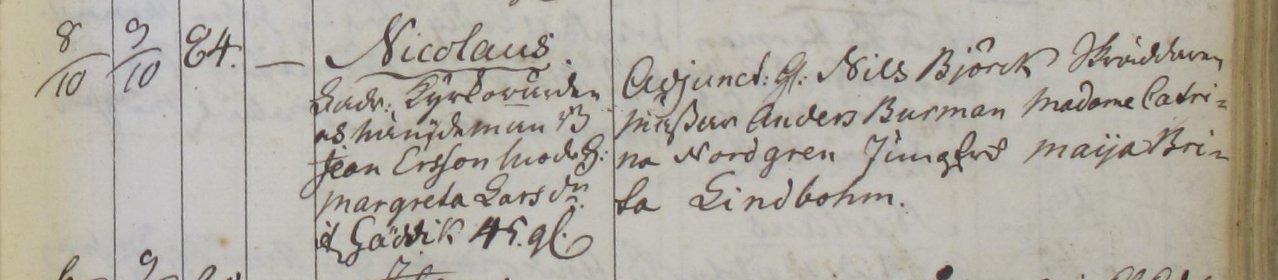 8/10 9/10 84. — Nicolaus.
Fadr: Kyrkovärden
och Nämndeman H
Jean Ersson Modr H:
Margreta Larsdr
i Gäddvik 45. gl.
Adjunct: H: Nils Björck Skräddaren
mäster Anders Burman Madame Catri=
na Nordgren Jungfrö Maija Bri=
ta Lindbohm.